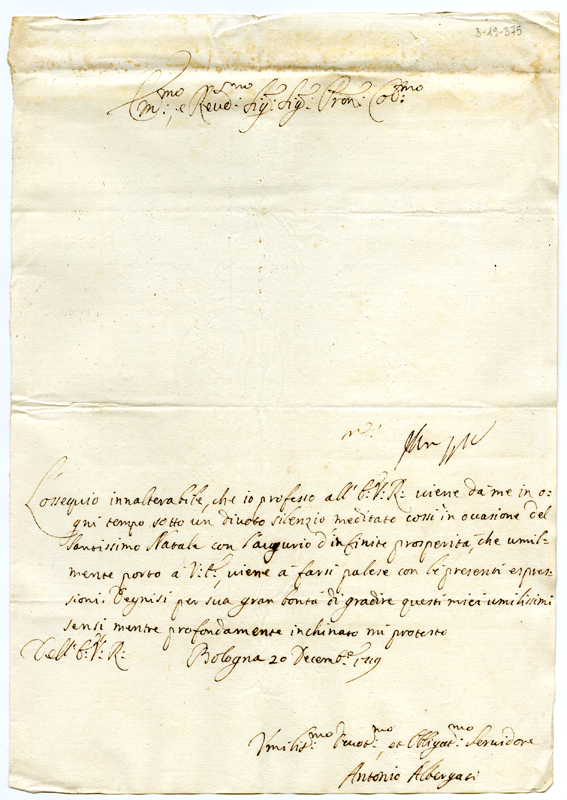 3-19-375
Em.mo, e Reud.mo Sig.r Sig.r Pron. Col.mo
L'ossequio innalterabile, che io professo all' E.V.R. viene da me in o-
gni tempo sotto un divoto silenzio meditato cossì in ocasione del
Santissimo Natale con l'augurio d'infinite prosperità, che umil-
mente porto a V.E., viene a farsi palese con le presenti espres-
sioni. Degnisi per sua gran bontà di gradire questi miei umilissimi
sensi mentre profondamente inchinato mi protesto
Dell' E.V.R. Bologna 20 Decemb.e 1719
Umiliss.mo Devot.mo, et Obligat.mo Servidore
Antonio Albergati